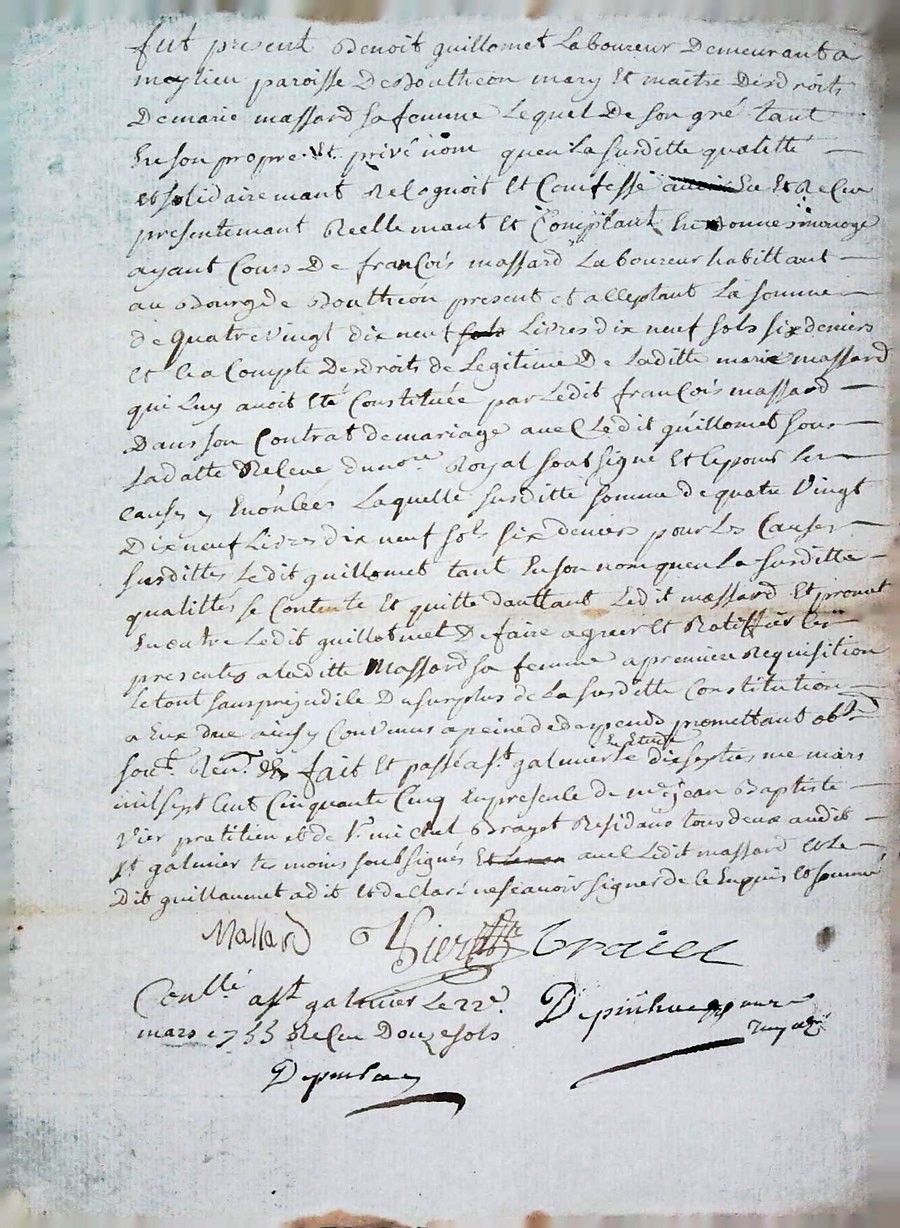 fut present Benoit guillomet Laboureur Demeurant a
meylieu paroisse De Boutheon mary Et maitre Desdroits
De marie massard sa femme Lequel De son gré tant
En son propre Et privé nom quen La susditte qualitté
et solidairemant Recognoit Et Comfesse Eu Et Recu
presentemant Reellemant et Comptant En Bonne monoye
ayant Cours De françois massard Laboureur habittant
au Bourg de Boutheon present et acceptant La somme
de quatre vingt dix neuf sols Livres dix neuf sols six deniers
et ce a Compte Desdroits de Legitime De Laditte marie massard
qui Luy avoit Eté Constituée par Ledit françois massard
Dans son Contrat de mariage avec Ledit guillomet sous
La datte Receue du nore Royal soubsigné Et ce pour Les
causes y Enoncées Laquelle susditte somme de quatre vingt
Dix neuf Livres dix neuf sols six deniers pour Les Causes
susdittes Ledit guillomet tant En son nom quen La susditte
qualittés se Contente Et quitte dauttant Ledit massard Et promet
En outre Ledit guillomet De faire agreer et Ratiffier Les
presentes a laditte Massard sa femme a premiere Requisition
Le tout sans prejudice Du surplus de La susditte Constitution
a Eux due ainsy Convenus a peine de depends promettant obt
soumt Rent fait Et passé a st galmier En Etude Le dixseptieme mars
mil sept Cent Cinquante Cinq En presence de me jean Baptiste
Vier pratitien et de sr michel Brayet Residans tous deux audit
st galmier temoins soubsignés avec Ledit massard et Le
Dit guillaumet a dit et declaré ne scavoir signer de ce Enquis Et sommé
Massard Vier Braiet
Conllé a st galmier Le 22e
mars 1755 Recu Douze sols